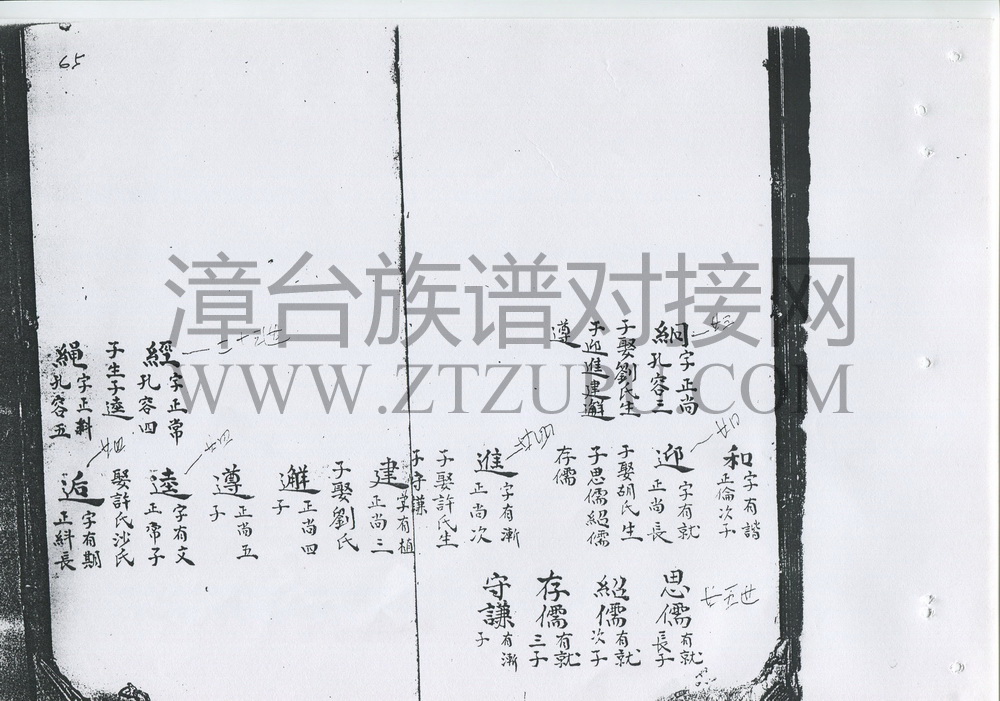 65
漳台族谱对接网
WWW.ZTZUPU.COM
絅 字正尚
孔容三
子娶劉氏生
子迎進建邂
遵
經 字正常
孔容四
子生子逵
二十三世
繩 字正料
孔容五
和 字有諧
正倫次子
迎 字有就
正尚長
子娶胡氏生
子思儒紹儒
存儒
進 字有漸
正尚次
子娶許氏生
子守謙
建 字有植
正尚三
子娶劉氏
邂 正尚四
子
遵 正尚五
子
逵 字有文
正常子
娶許氏沙氏
逅 字有期
正料長
廿五世
思儒 有就
長子
紹儒 有就
次子
存儒 有就
三子
守謙 有漸
子